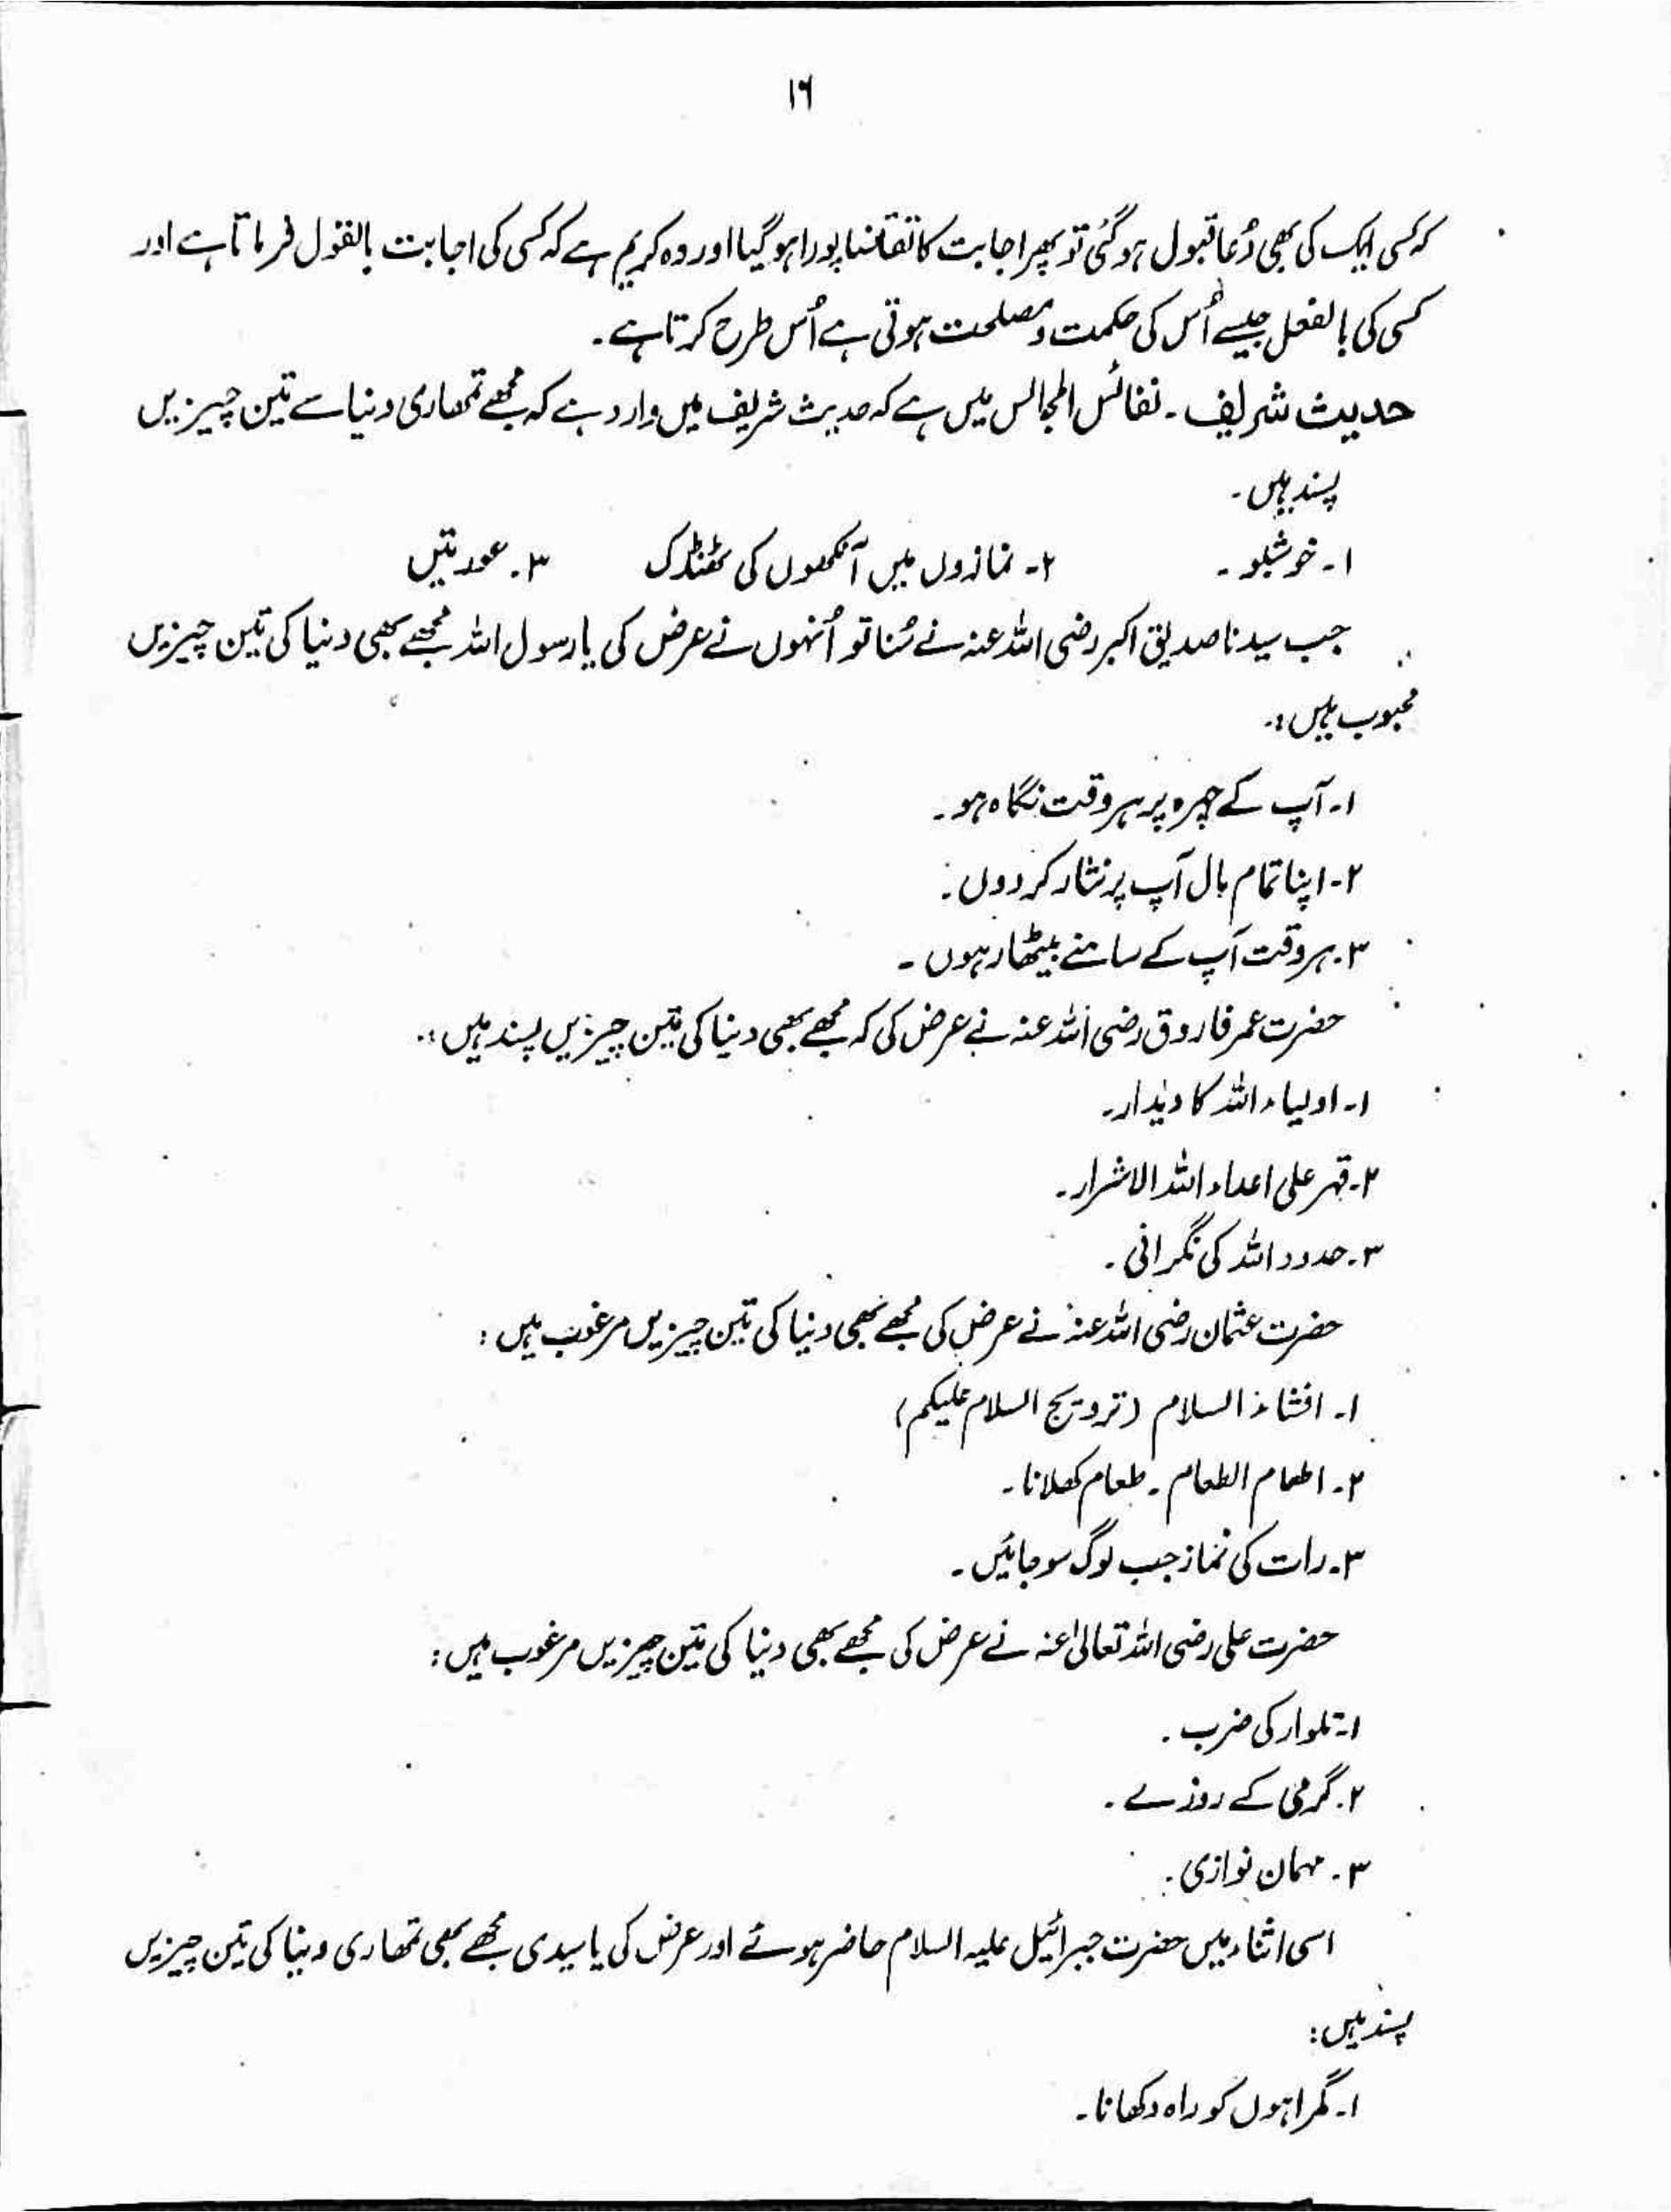 ۱۶
کہ کسی ایک کی بھی دُعا قبول ہوگئی تو پھر اجابت کا تقاضا پورا ہوگیا اور وہ کریم ہے کہ کسی کی اجابت بالقول فرماتا ہے اور
کسی کی بالفعل جیسے اُس کی حکمت و مصلحت ہوتی ہے اُس طرح کرتا ہے ۔
حدیث شریف ۔ نفائس المجالس میں ہے کہ حدیث شریف میں وارد ہے کہ مجھے تمھاری دنیا سے تین چیزیں
پسند ہیں ۔
۱۔ خوشبو ۔ ۲۔ نمازوں میں آنکھوں کی ٹھنڈک ۳۔ عورتیں
جب سیدنا صدیق اکبر رضی اللہ عنہ نے سُنا تو اُنہوں نے عرض کی یا رسول اللہ مجھے بھی دنیا کی تین چیزیں
محبوب ہیں :۔
۱۔ آپ کے چہرہ پر ہر وقت نگاہ ہو ۔
۲۔ اپنا تمام مال آپ پر نثار کردوں ۔
۳۔ ہر وقت آپ کے سامنے بیٹھا رہوں ۔
حضرت عمر فاروق رضی اللہ عنہ نے عرض کی کہ مجھے بھی دنیا کی تین چیزیں پسند ہیں :۔
۱۔ اولیاء اللہ کا دیدار ۔
۲۔ قہر علی اعداء اللہ الاشرار ۔
۳۔ حدود اللہ کی نگرانی ۔
حضرت عثمان رضی اللہ عنہ نے عرض کی مجھے بھی دنیا کی تین چیزیں مرغوب ہیں :
۱۔ افشاء السلام (ترویج السلام علیکم)
۲۔ اطعام الطعام ۔ طعام کھلانا ۔
۳۔ رات کی نماز جب لوگ سوجائیں ۔
حضرت علی رضی اللہ تعالیٰ عنہ نے عرض کی مجھے بھی دنیا کی تین چیزیں مرغوب ہیں :
۱۔ تلوار کی ضرب ۔
۲۔ گرمی کے روزے ۔
۳۔ مہمان نوازی ۔
اسی اثناء میں حضرت جبرائیل علیہ السلام حاضر ہوئے اور عرض کی یا سیدی مجھے بھی تمھاری دنیا کی تین چیزیں
پسند ہیں :
۱۔ گمراہوں کو راہ دکھانا ۔